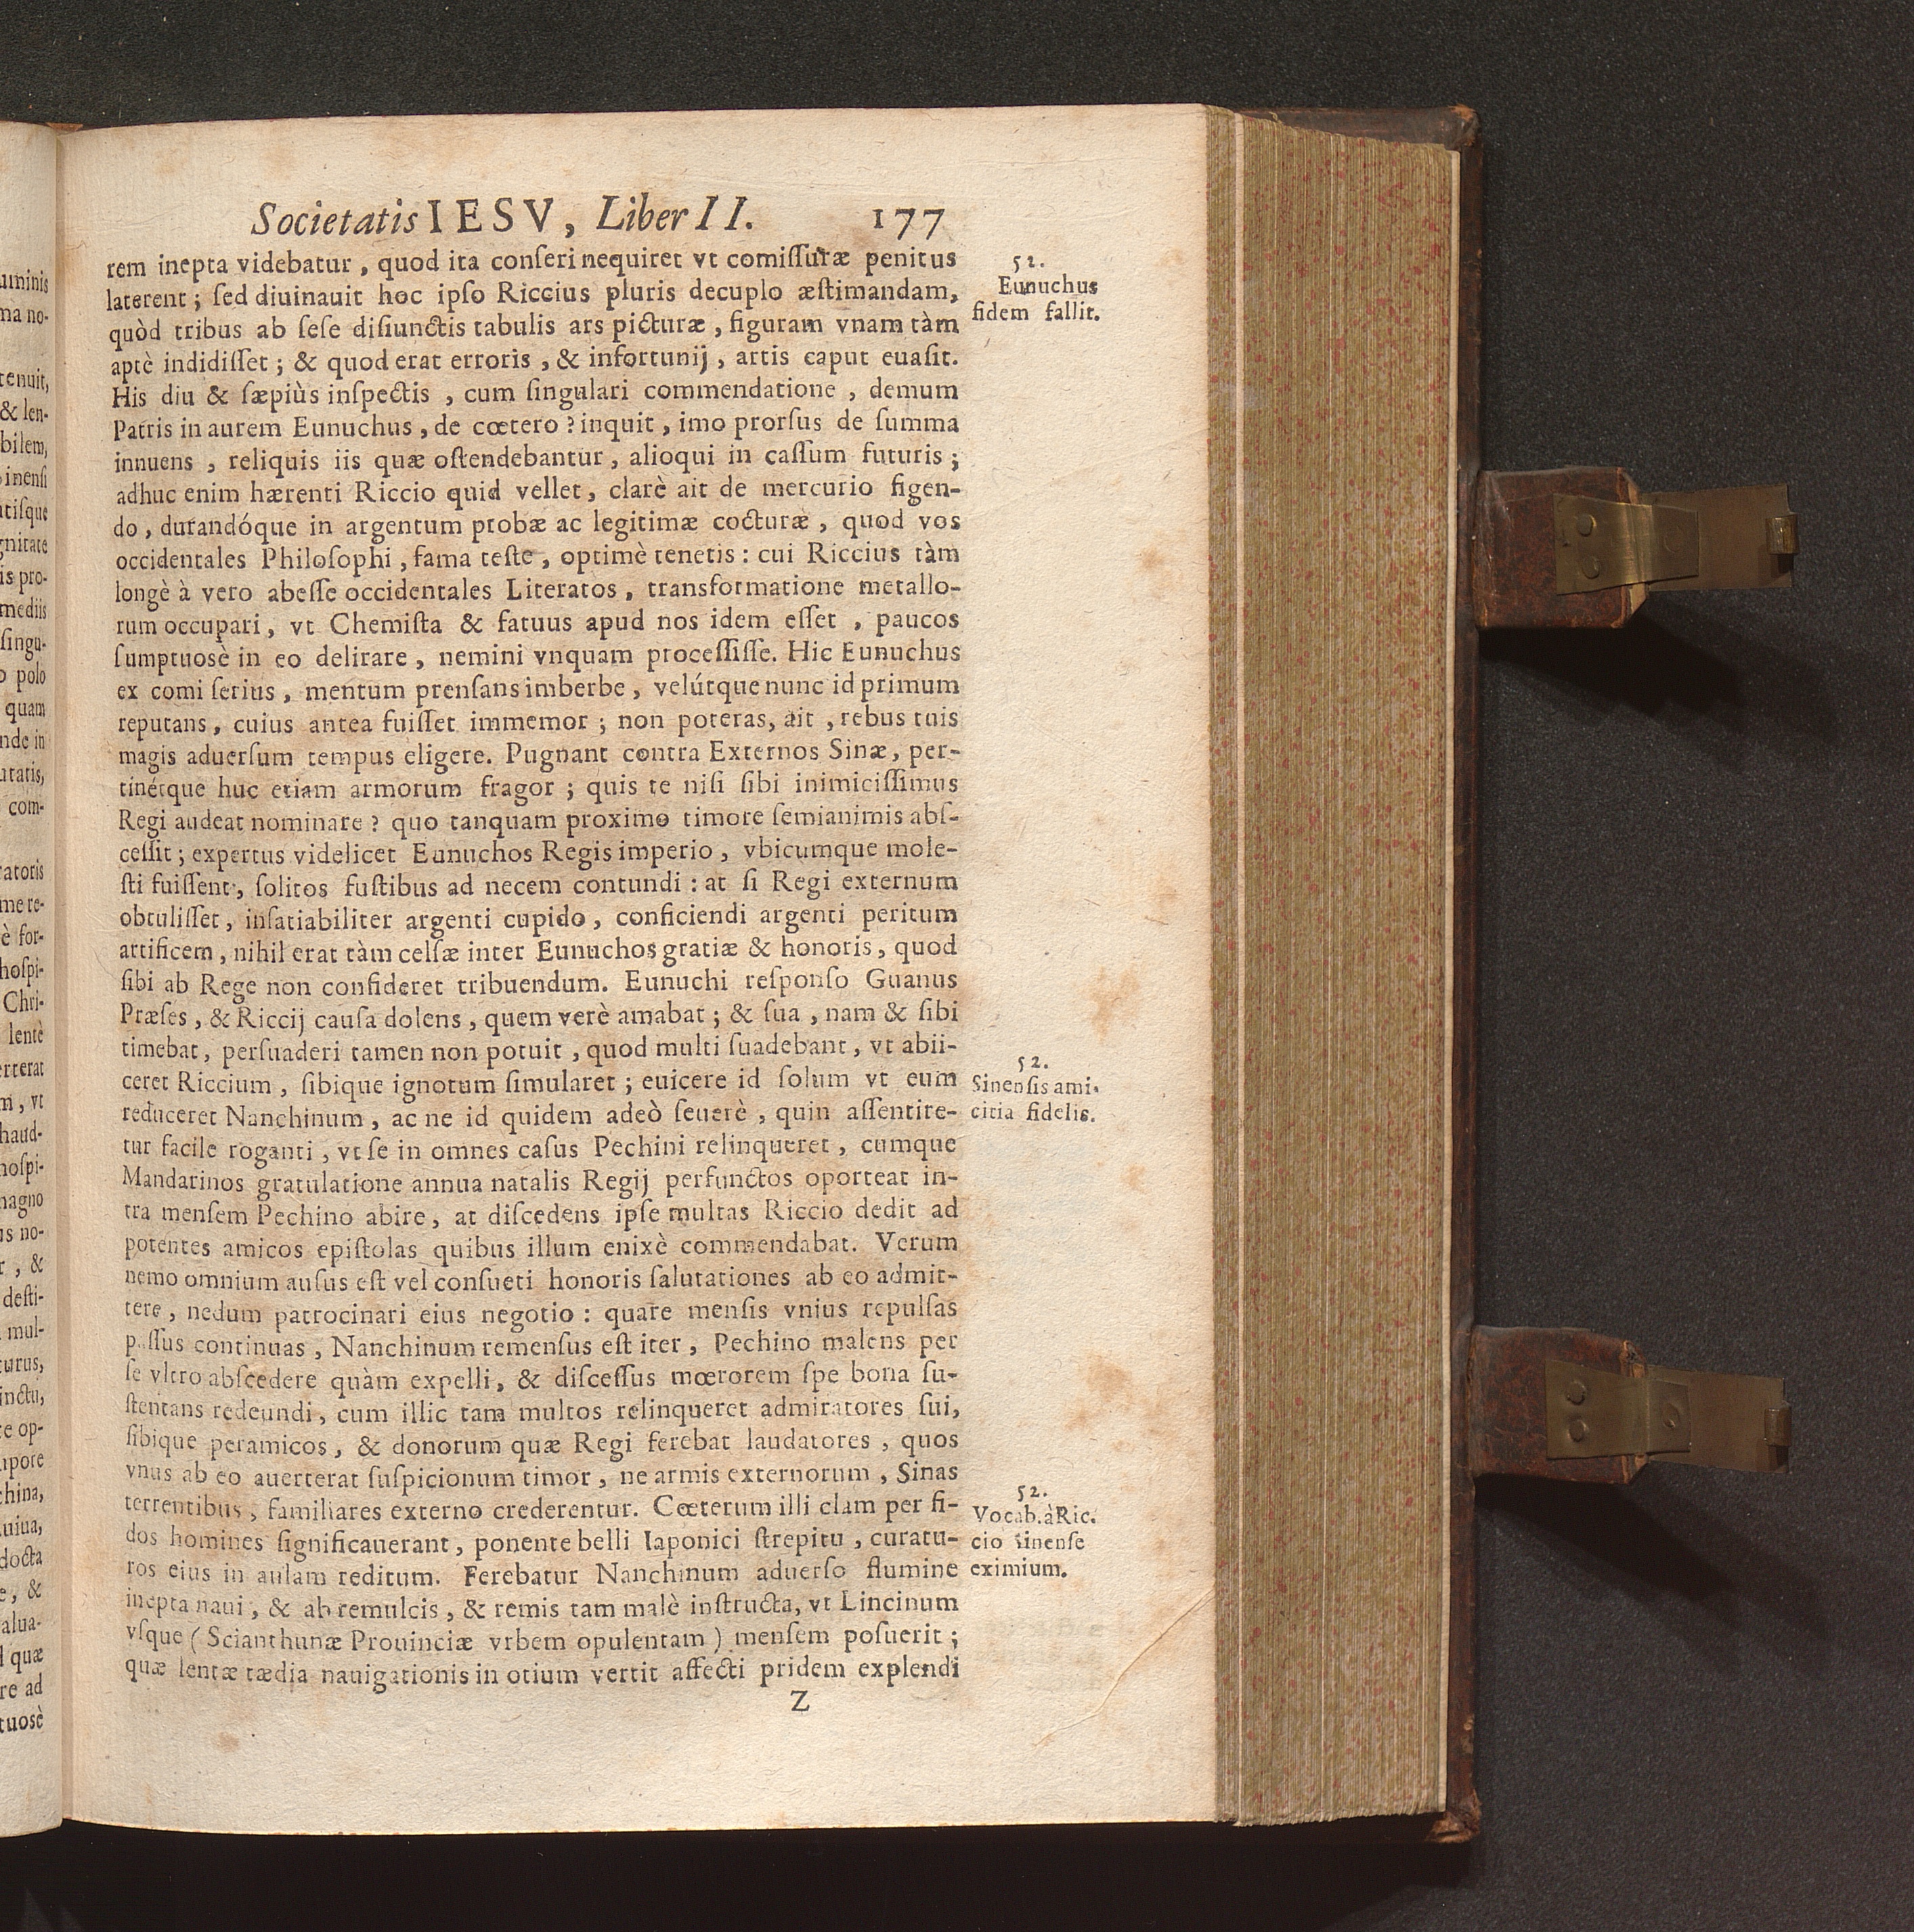 Societatis IESV, Liber II. 177
rem inepta videbatur, quod ita conſeri nequiret vt comiſſuræ penitus
laterent; ſed diuinauit hoc ipſo Riccius pluris decuplo æſtimandam,
quòd tribus ab ſeſe diſiunctis tabulis ars picturæ, figuram vnam tàm
aptè indidiſſet; & quod erat erroris, & infortunij, artis caput euaſit.
His diu & ſæpiùs inſpectis, cum ſingulari commendatione, demum
Patris in aurem Eunuchus, de cœtero? inquit, imo prorſus de ſumma
innuens, reliquis iis quæ oſtendebantur, alioqui in caſſum futuris;
adhuc enim hærenti Riccio quid vellet, clarè ait de mercurio figen-
do, durandóque in argentum probæ ac legitimæ cocturæ, quod vos
occidentales Philoſophi, fama teſte, optimè tenetis: cui Riccius tàm
longè à vero abeſſe occidentales Literatos, transformatione metallo-
rum occupari, vt Chemiſta & fatuus apud nos idem eſſet, paucos
ſumptuosè in eo delirare, nemini vnquam proceſſiſſe. Hic Eunuchus
ex comi ſerius, mentum prenſans imberbe, velútque nunc id primum
reputans, cuius antea fuiſſet immemor; non poteras, ait, rebus tuis
magis aduerſum tempus eligere. Pugnant contra Externos Sinæ, per-
tinétque huc etiam armorum fragor; quis te niſi ſibi inimiciſſimus
Regi audeat nominare? quo tanquam proximo timore ſemianimis abſ-
ceſſit; expertus videlicet Eunuchos Regis imperio, vbicumque mole-
ſti fuiſſent, ſolitos fuſtibus ad necem contundi: at ſi Regi externum
obtuliſſet, inſatiabiliter argenti cupido, conficiendi argenti peritum
artificem, nihil erat tàm celſæ inter Eunuchos gratiæ & honoris, quod
ſibi ab Rege non confideret tribuendum. Eunuchi reſponſo Guanus
Præſes, & Riccij cauſa dolens, quem verè amabat; & ſua, nam & ſibi
timebat, perſuaderi tamen non potuit, quod multi ſuadebant, vt abii-
ceret Riccium, ſibique ignotum ſimularet; euicere id ſolum vt eum
reduceret Nanchinum, ac ne id quidem adeò ſeuerè, quin aſſentire-
tur facile roganti, vt ſe in omnes caſus Pechini relinqueret, cumque
Mandarinos gratulatione annua natalis Regij perfunctos oporteat in-
tra menſem Pechino abire, at diſcedens ipſe multas Riccio dedit ad
potentes amicos epiſtolas quibus illum enixè commendabat. Verum
nemo omnium auſus eſt vel conſueti honoris ſalutationes ab eo admit-
tere, nedum patrocinari eius negotio: quare menſis vnius repulſas
paſſus continuas, Nanchinum remenſus eſt iter, Pechino malens per
ſe vltro abſcedere quàm expelli, & diſceſſus mœrorem ſpe bona ſu-
ſtentans redeundi, cum illic tam multos relinqueret admiratores ſui,
ſibique peramicos, & donorum quæ Regi ferebat laudatores, quos
vnus ab eo auerterat ſuſpicionum timor, ne armis externorum, Sinas
terrentibus, familiares externo crederentur. Cœterum illi clam per fi-
dos homines ſignificauerant, ponente belli Iaponici ſtrepitu, curatu-
ros eius in aulam reditum. Ferebatur Nanchinum aduerſo flumine
inepta naui, & ab remulcis, & remis tam malè inſtructa, vt Lincinum
vſque (Scianthunæ Prouinciæ vrbem opulentam) menſem poſuerit;
quæ lentæ tædia nauigationis in otium vertit affecti pridem explendi
Z
52.
Eunuchus
fidem fallit.
52.
Sinenſis ami-
citia fidelis.
52.
Vocab. à Ric.
cio ſinenſe
eximium.
uminis
ma no-
tenuit,
& len-
bilem,
inenſi
utiſque
gnitate
is pro-
mediis
ſingu-
o polo
quam
nde in
utatis,
com-
ratoris
me re-
è for-
hoſpi-
Chri-
lentè
erterat
m, vt
haud-
hoſpi-
magno
us no-
r, &
deſti-
mul-
turus,
inctu,
re op-
mpore
china,
uiua,
docta
e, &
alua-
l quæ
re ad
tuosè